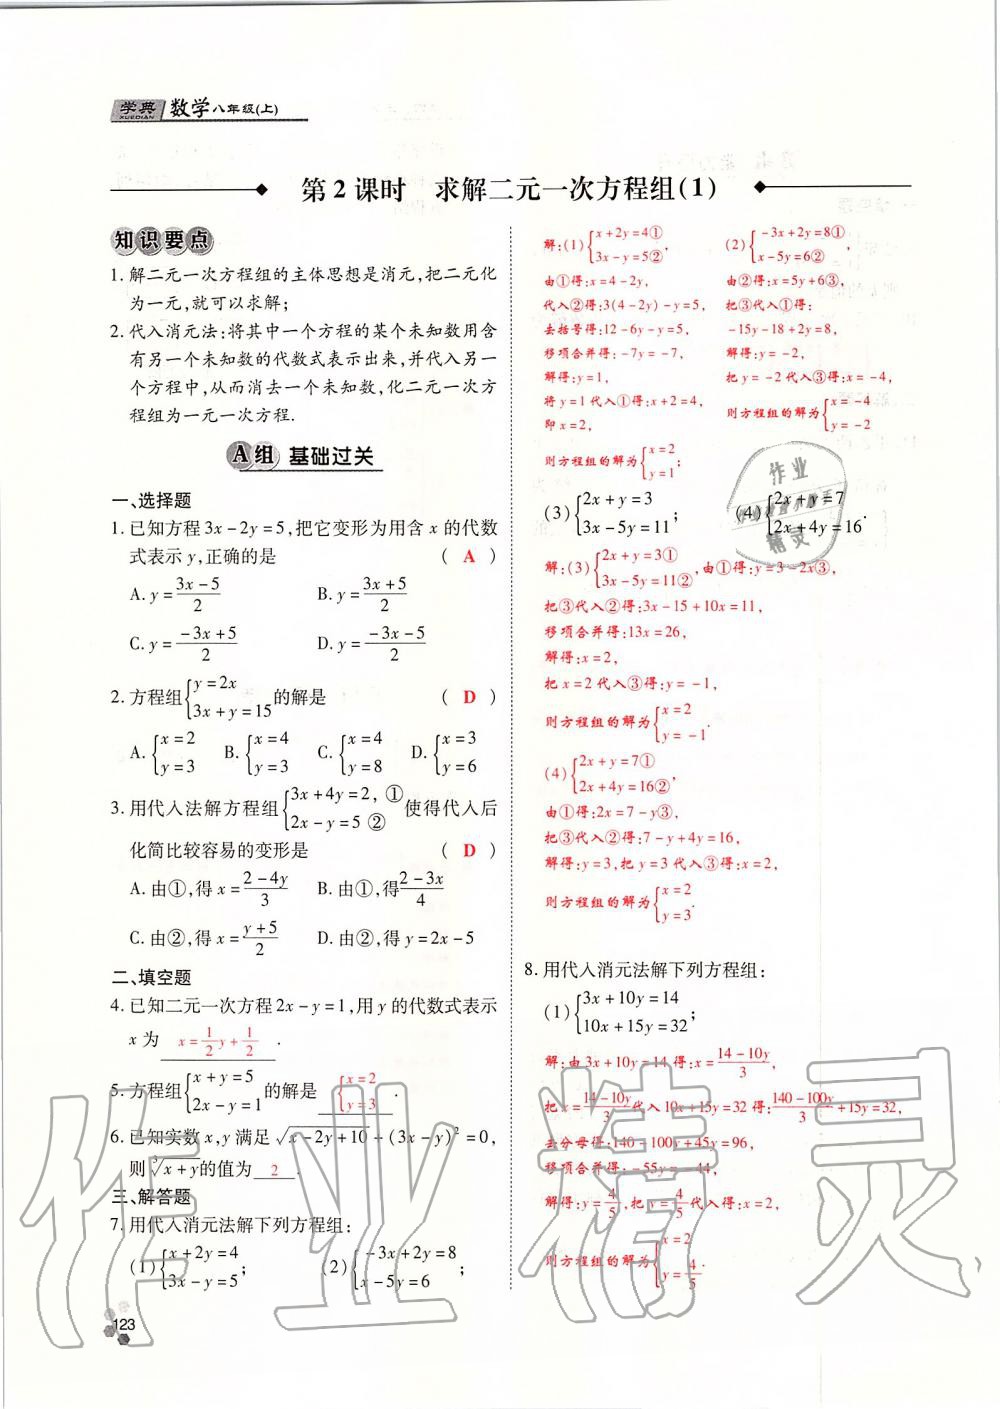 学典 数学八年级(上)
XUEDIAN
第2课时 求解二元一次方程组(1)
知识要点
1. 解二元一次方程组的主体思想是消元,把二元化
为一元,就可以求解;
2. 代入消元法:将其中一个方程的某个未知数用含
有另一个未知数的代数式表示出来,并代入另一
个方程中,从而消去一个未知数,化二元一次方
程组为一元一次方程.
A组 基础过关
一、选择题
1. 已知方程 3x-2y=5,把它变形为用含 x 的代数
式表示 y,正确的是 ( A )
A. y=(3x-5)/2 B. y=(3x+5)/2
C. y=(-3x+5)/2 D. y=(-3x-5)/2
2. 方程组{y=2x 3x+y=15 的解是 ( D )
A. {x=2 y=3 B. {x=4 y=3 C. {x=4 y=8 D. {x=3 y=6
3. 用代入法解方程组{3x+4y=2, ① 2x-y=5 ② 使得代入后
化简比较容易的变形是 ( D )
A. 由①,得 x=(2-4y)/3 B. 由①,得(2-3x)/4
C. 由②,得 x=(y+5)/2 D. 由②,得 y=2x-5
二、填空题
4. 已知二元一次方程 2x-y=1,用 y 的代数式表示
x 为 x=1/2y+1/2 .
5. 方程组{x+y=5 2x-y=1 的解是 {x=2 y=3 .
6. 已知实数 x,y 满足 √(x-2y+10)+(3x-y)²=0,
则 ³√(x+y)的值为 2 .
三、解答题
7. 用代入消元法解下列方程组:
(1){x+2y=4 3x-y=5; (2){-3x+2y=8 x-5y=6;
123
解:(1){x+2y=4① 3x-y=5②, (2){-3x+2y=8① x-5y=6②,
由①得:x=4-2y, 由②得:x=5y+6③,
代入②得:3(4-2y)-y=5, 把③代入①得:
去括号得:12-6y-y=5, -15y-18+2y=8,
移项合并得:-7y=-7, 解得:y=-2,
解得:y=1, 把 y=-2 代入③得:x=-4,
将 y=1 代入①得:x+2=4, 则方程组的解为{x=-4 y=-2
即 x=2,
则方程组的解为{x=2 y=1;
(3){2x+y=3 3x-5y=11; (4){2x+y=7 2x+4y=16.
作业
精灵
解:(3){2x+y=3① 3x-5y=11②,由①得:y=3-2x③,
把③代入②得:3x-15+10x=11,
移项合并得:13x=26,
解得:x=2,
把 x=2 代入③得:y=-1,
则方程组的解为{x=2 y=-1.
(4){2x+y=7① 2x+4y=16②,
由①得:2x=7-y③,
把③代入②得:7-y+4y=16,
解得:y=3,把 y=3 代入③得:x=2,
则方程组的解为{x=2 y=3.
8. 用代入消元法解下列方程组:
(1){3x+10y=14 10x+15y=32;
解:由 3x+10y=14 得:x=(14-10y)/3,
把 x=(14-10y)/3 代入 10x+15y=32 得:(140-100y)/3+15y=32,
去分母得:140-100y+45y=96,
移项合并得:-55y=-44,
解得:y=4/5,把 y=4/5 代入得:x=2,
则方程组的解为{x=2 y=4/5.
作业精灵